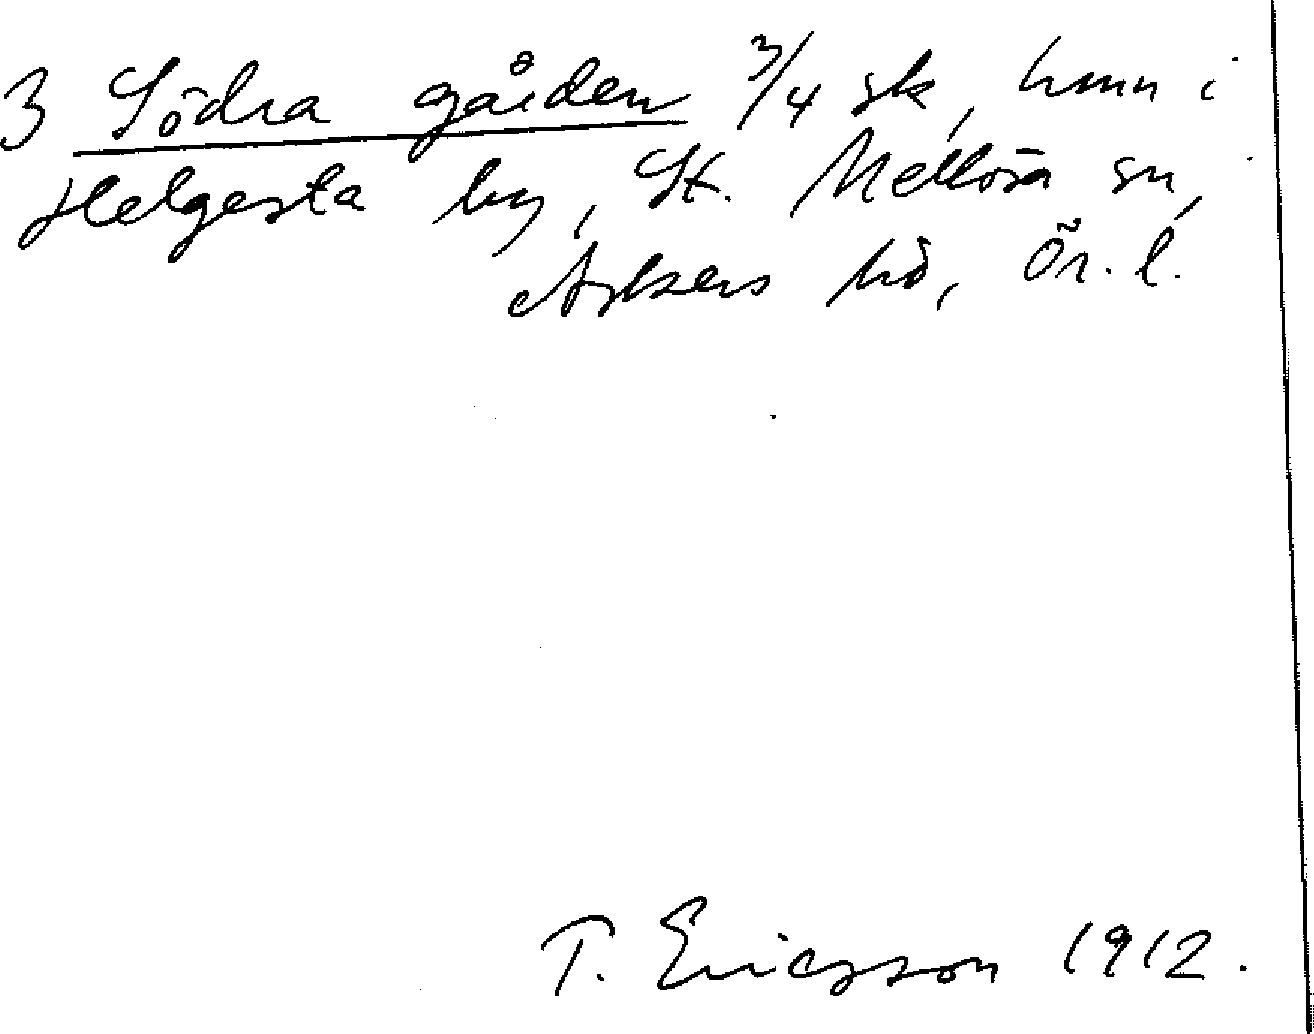 3 Södra gården 3/4 sk, hmn i
Helgesta by, St. Mellösa sn,
Askers hd, Ör. l.
T. Ericsson 1912.